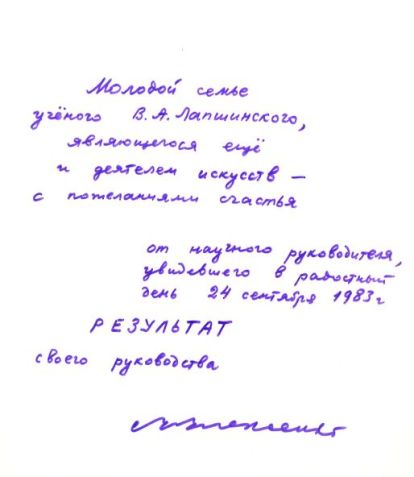 Молодой семье
учёного В. А. Лапшинского,
являющегося ещё
и деятелем искусств —
с пожеланиями счастья
от научного руководителя,
увидевшего в радостный
день 24 сентября 1983 г
РЕЗУЛЬТАТ
своего руководства